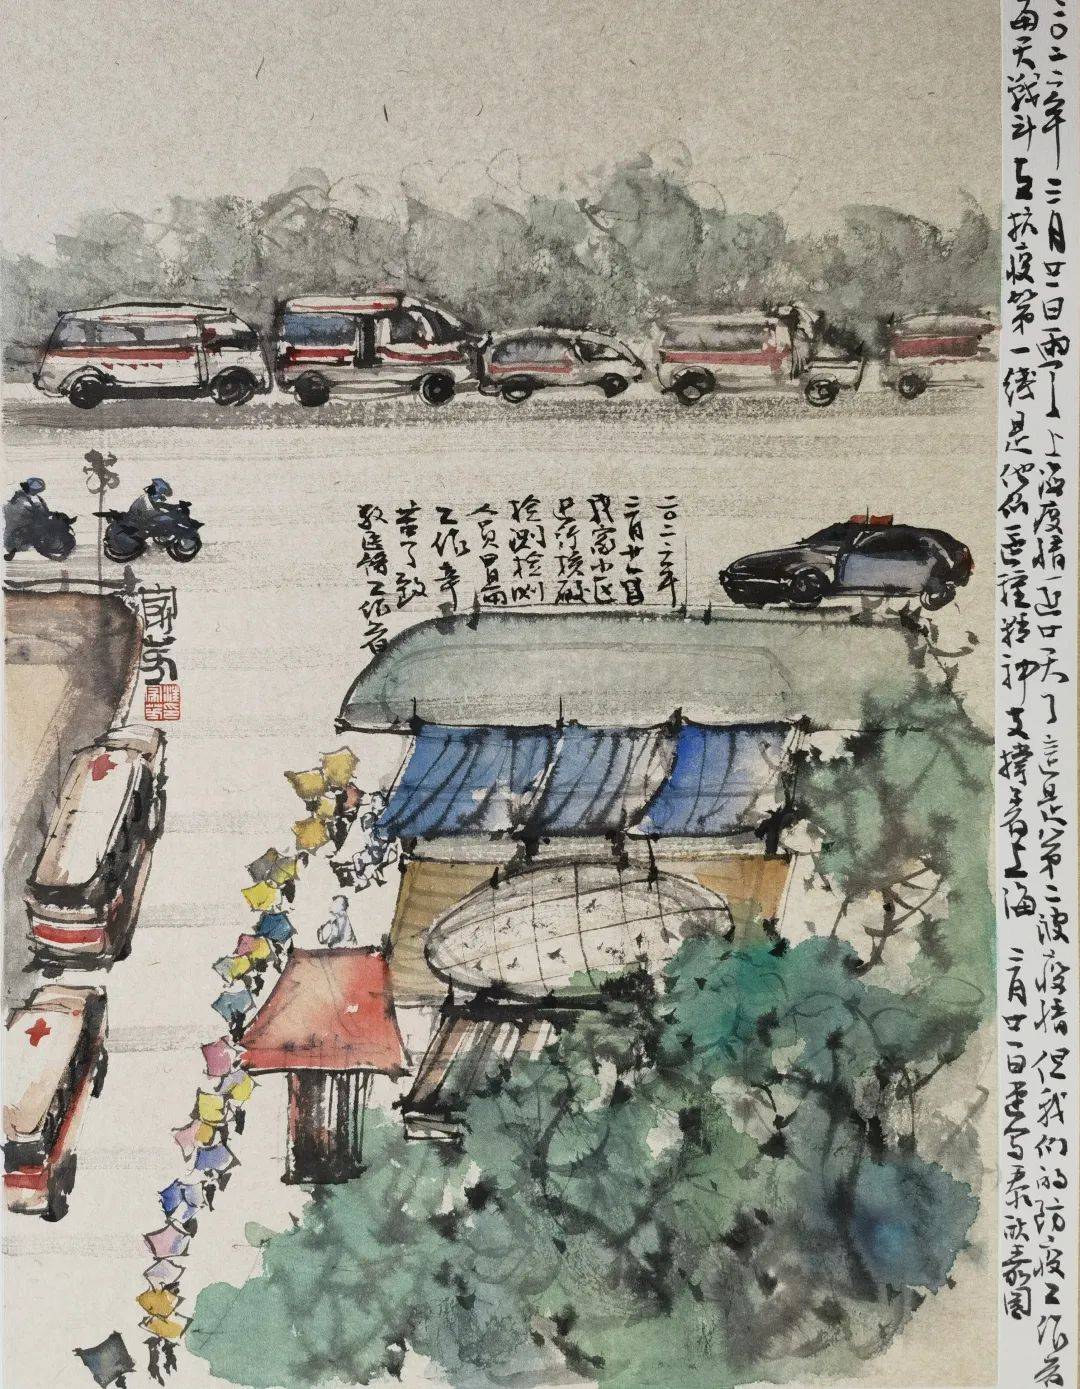 二〇二二年三月廿一日雨了上海疫情近廿天了这是第二波疫情但我们的防疫工作者
每天战斗在抗疫第一线是他们这种精神支撑着上海 三月廿一日速写泰欣嘉园
二〇二二年
三月廿一日
我家小区
进行核酸
检测检测
人员冒雨
工作辛
苦了致
敬工作者